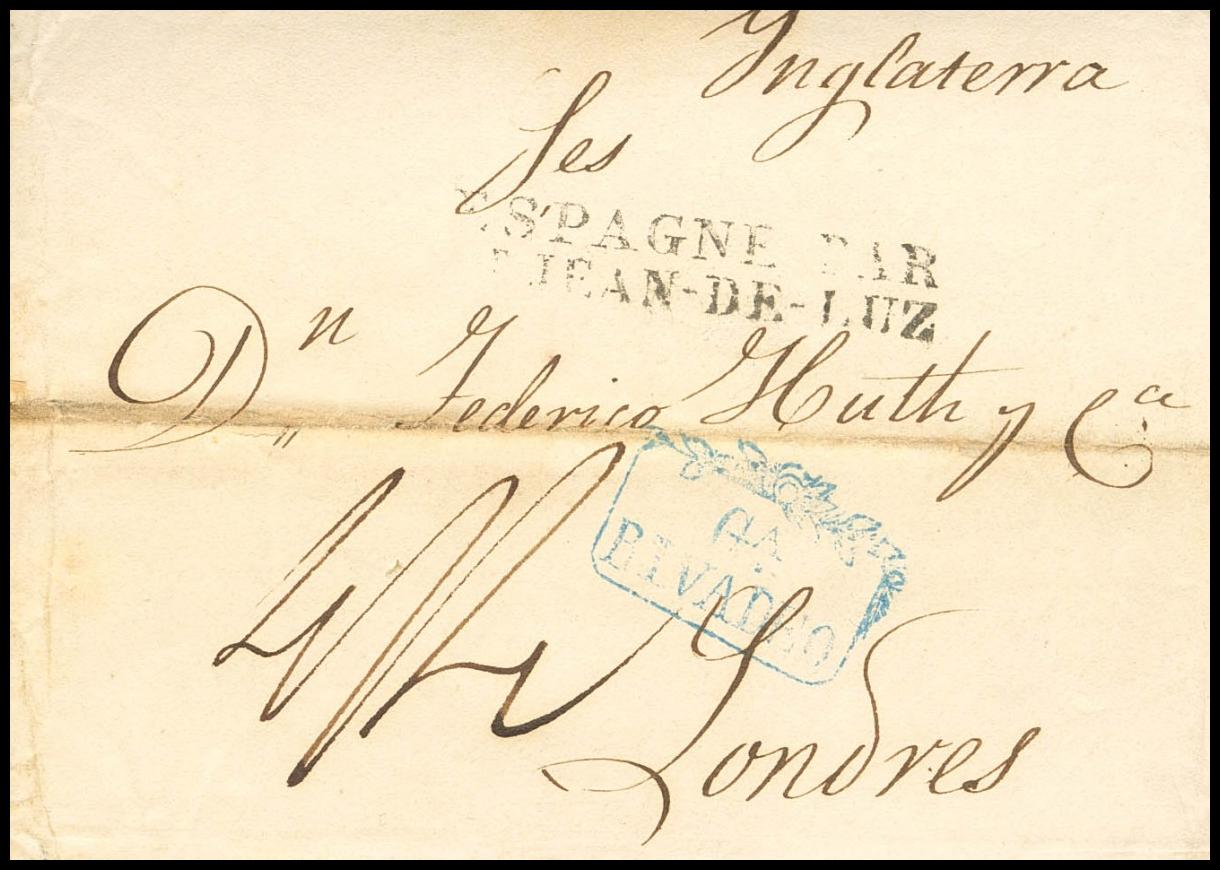 Inglaterra
Ses
ESPAGNE PAR
T JEAN-DE-LUZ
Dn Federico Huth y Ca
GA
RIVADEO
Londres